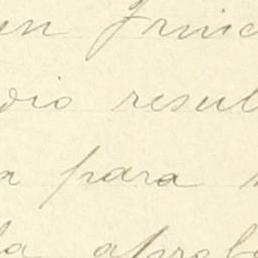 en princ
dio resul
a para
la aprob